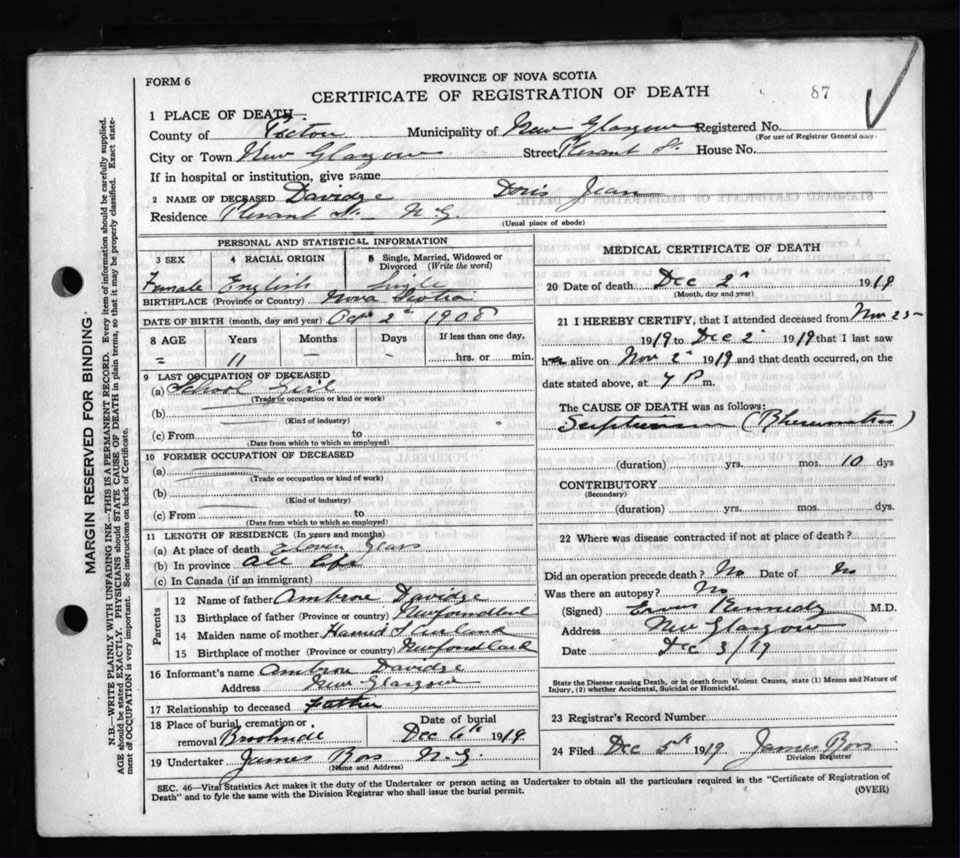 FORM 6
PROVINCE OF NOVA SCOTIA
CERTIFICATE OF REGISTRATION OF DEATH
87
1 PLACE OF DEATH
County of Pictou Municipality of New Glasgow Registered No.
(For use of Registrar General only)
City or Town New Glasgow Street St. House No.
If in hospital or institution, give name
2 NAME OF DECEASED Davidge Doris Jean
Residence St. N. G.
(Usual place of abode)
PERSONAL AND STATISTICAL INFORMATION
3 SEX 4 RACIAL ORIGIN 5 Single, Married, Widowed or Divorced (Write the word)
Female English Single
BIRTHPLACE (Province or Country) Nova Scotia
DATE OF BIRTH (month, day and year) 2 1908
8 AGE Years Months Days If less than one day,
11 hrs. or min.
9 LAST OCCUPATION OF DECEASED
(a) School Girl
(Trade or occupation or kind or work)
(b)
(Kind of industry)
(c) From to
(Date from which to which so employed)
10 FORMER OCCUPATION OF DECEASED
(a)
(Trade or occupation or kind of work)
(b)
(Kind of industry)
(c) From to
(Date from which to which so employed)
11 LENGTH OF RESIDENCE (In years and months)
(a) At place of death Eleven Years
(b) In province All life
(c) In Canada (if an immigrant)
Parents
12 Name of father Ambrose Davidge
13 Birthplace of father (Province or country) Newfoundland
14 Maiden name of mother
15 Birthplace of mother (Province or country) Newfoundland
16 Informant's name Ambrose Davidge
Address New Glasgow
17 Relationship to deceased Father
18 Place of burial, cremation or removal Brookside Date of burial Dec 6th 1919
19 Undertaker James Ross N. G.
(Name and Address)
MEDICAL CERTIFICATE OF DEATH
20 Date of death Dec 2 1919
(Month, day and year)
21 I HEREBY CERTIFY, that I attended deceased from Nov 25
1919 to Dec 2 1919 that I last saw
her alive on Nov 2 1919 and that death occurred, on the
date stated above, at 7 P m.
The CAUSE OF DEATH was as follows:
(duration) yrs. mos. 10 dys
CONTRIBUTORY
(Secondary)
(duration) yrs. mos. dys.
22 Where was disease contracted if not at place of death?
Did an operation precede death? No Date of No
Was there an autopsy? No
(Signed) Kennedy M.D.
Address New Glasgow
Date Dec 3/19
State the Disease causing Death, or in death from Violent Causes, state (1) Means and Nature of
Injury, (2) whether Accidental, Suicidal or Homicidal.
23 Registrar's Record Number
24 Filed Dec 5th 1919 James Ross
Division Registrar
SEC. 46—Vital Statistics Act makes it the duty of the Undertaker or person acting as Undertaker to obtain all the particulars required in the "Certificate of Registration of
Death" and to fyle the same with the Division Registrar who shall issue the burial permit.
(OVER)
MARGIN RESERVED FOR BINDING
N.B.—WRITE PLAINLY WITH UNFADING INK—THIS IS A PERMANENT RECORD. Every item of information should be carefully supplied.
AGE should be stated EXACTLY. PHYSICIANS should STATE CAUSE OF DEATH in plain terms, so that it may be properly classified. Exact statement
of OCCUPATION is very important. See instructions on back of Certificate.